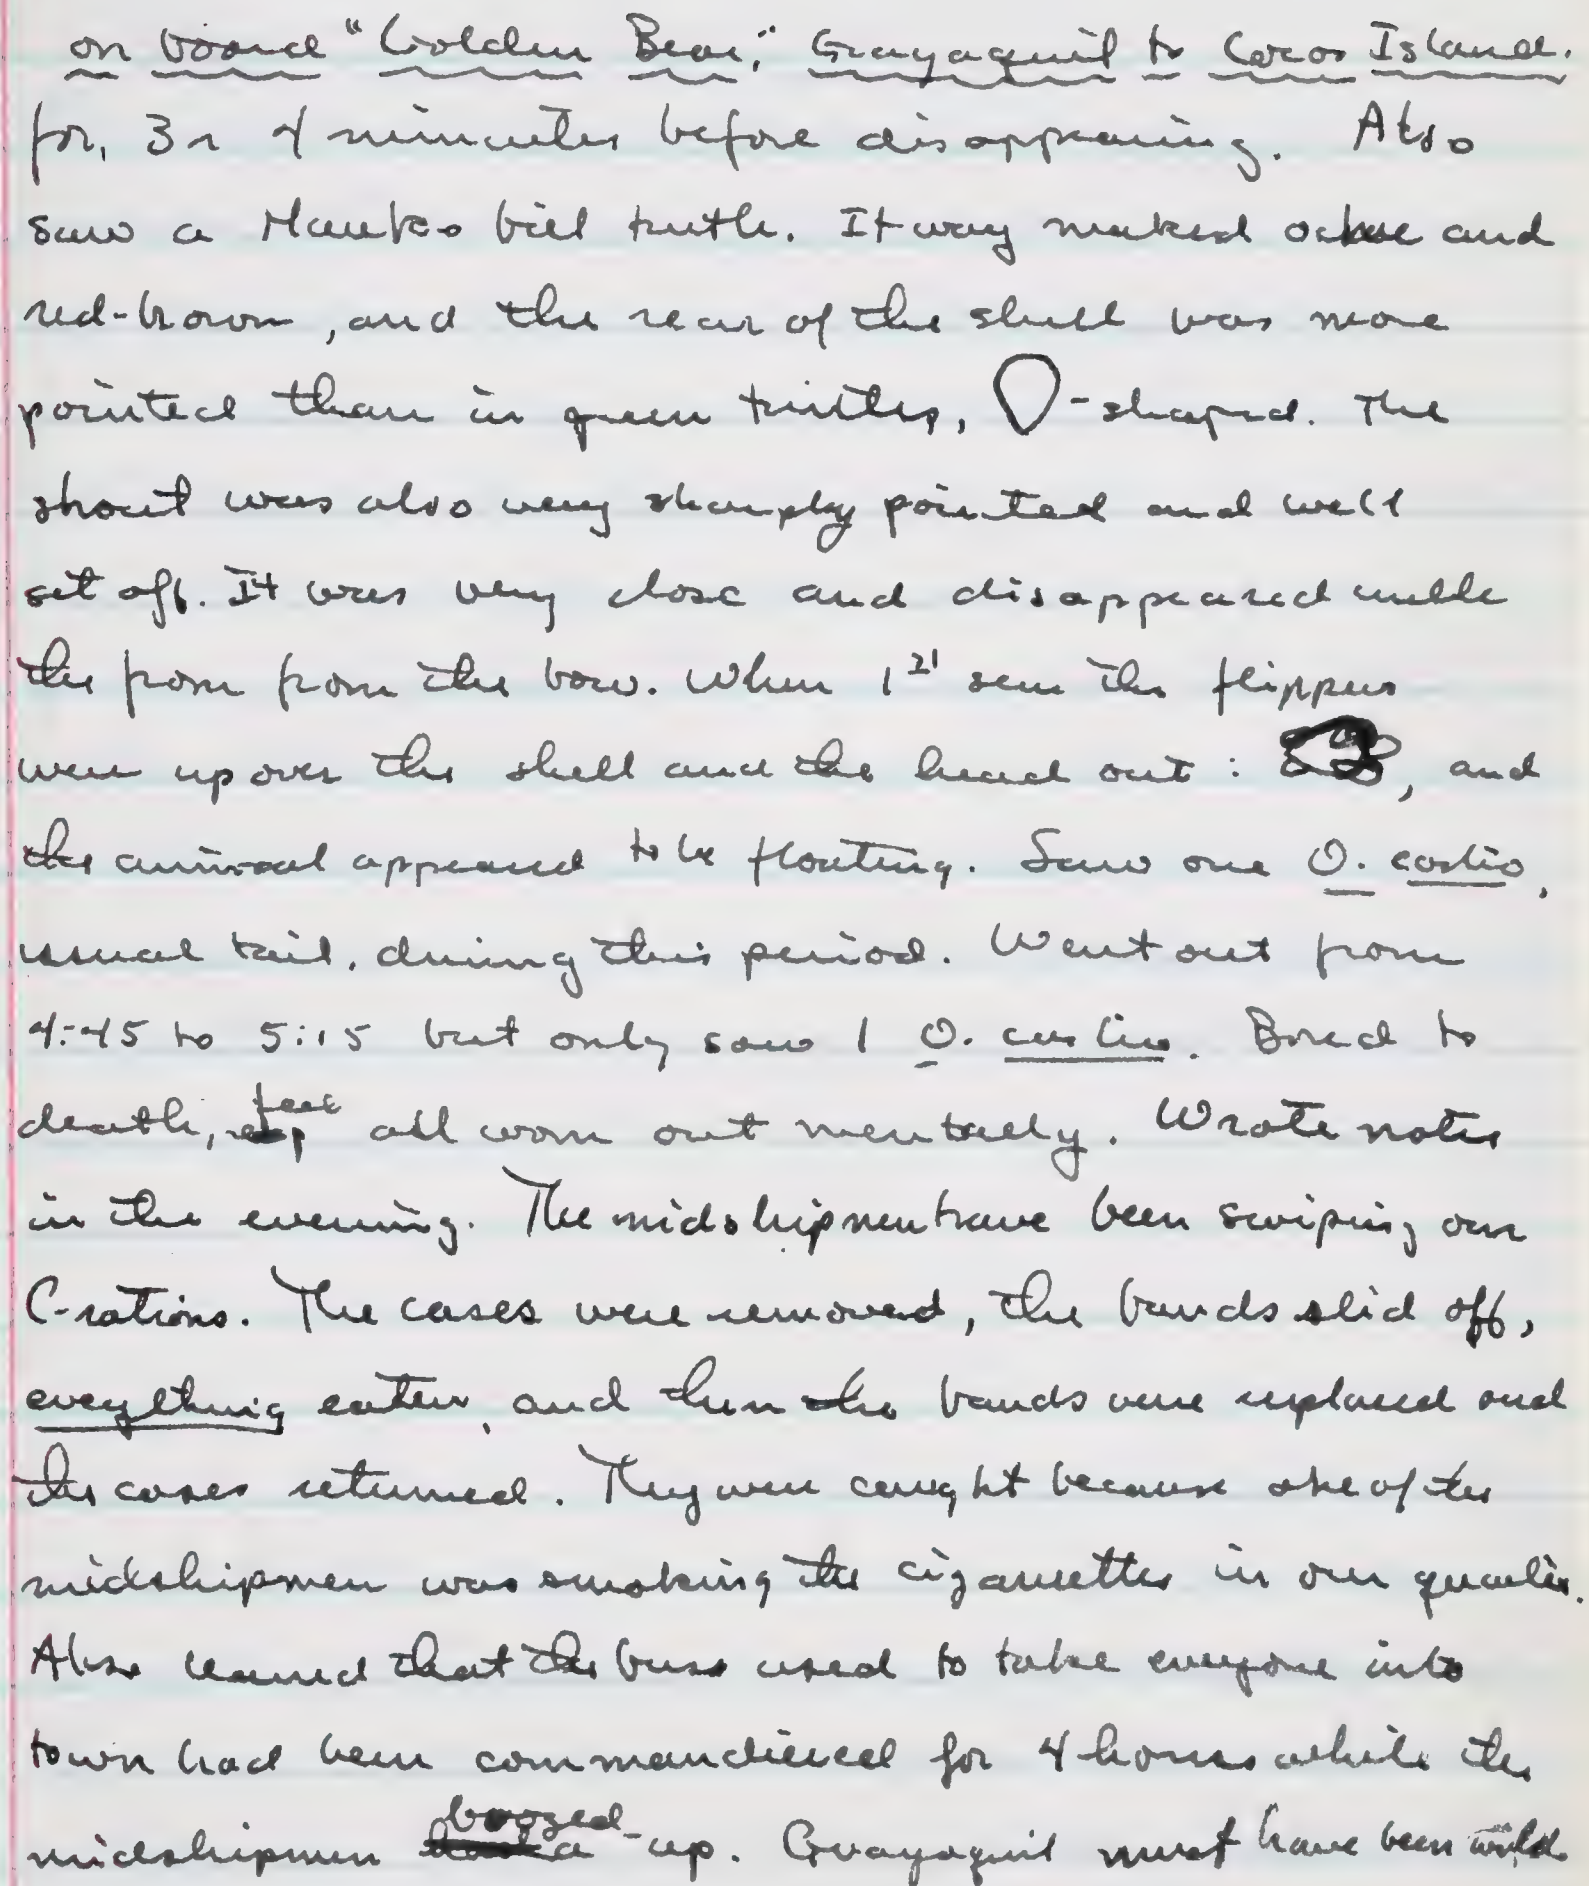 on board "Golden Bear," Guayaquil to Cocos Island.
for, 3 or 4 minutes before disappearing. Also
saw a Hawks bill turtle. It was marked ochre and
red-brown, and the rear of the shell was more
pointed than in green turtles, -shaped. The
snout was also very sharply pointed and well
set off. It was very close and disappeared under
the from from the bow. When 1st seen the flippers
were up over the shell and the head out: , and
the animal appeared to be floating. Saw one O. castro,
usual tail, during this period. Went out from
4:45 to 5:15 but only saw 1 O. castro. Bored to
death, feel all worn out mentally. Wrote notes
in the evening. The midshipmen have been swiping our
C-rations. The cases were removed, the bands slid off,
everything eaten, and then the bands were replaced and
the cases returned. They were caught because one of the
midshipmen was smoking the cigarettes in our quarters.
Also learned that the bus used to take everyone into
town had been commandiered for 4 hours while the
midshipmen boozed-up. Guayaquil must have been wild